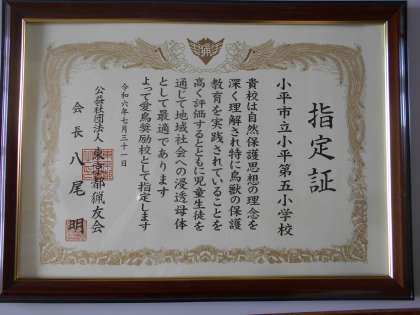 指定証
小平市立小平第五小学校
貴校は自然保護思想の理念を
深く理解され特に鳥獣の保護
教育を実践されていることを
高く評価するとともに児童生徒を
通じて地域社会への浸透母体
として最適であります
よって愛鳥奨励校として指定します
令和六年七月三十一日
公益社団法人 東京都猟友会
会長 八尾 明